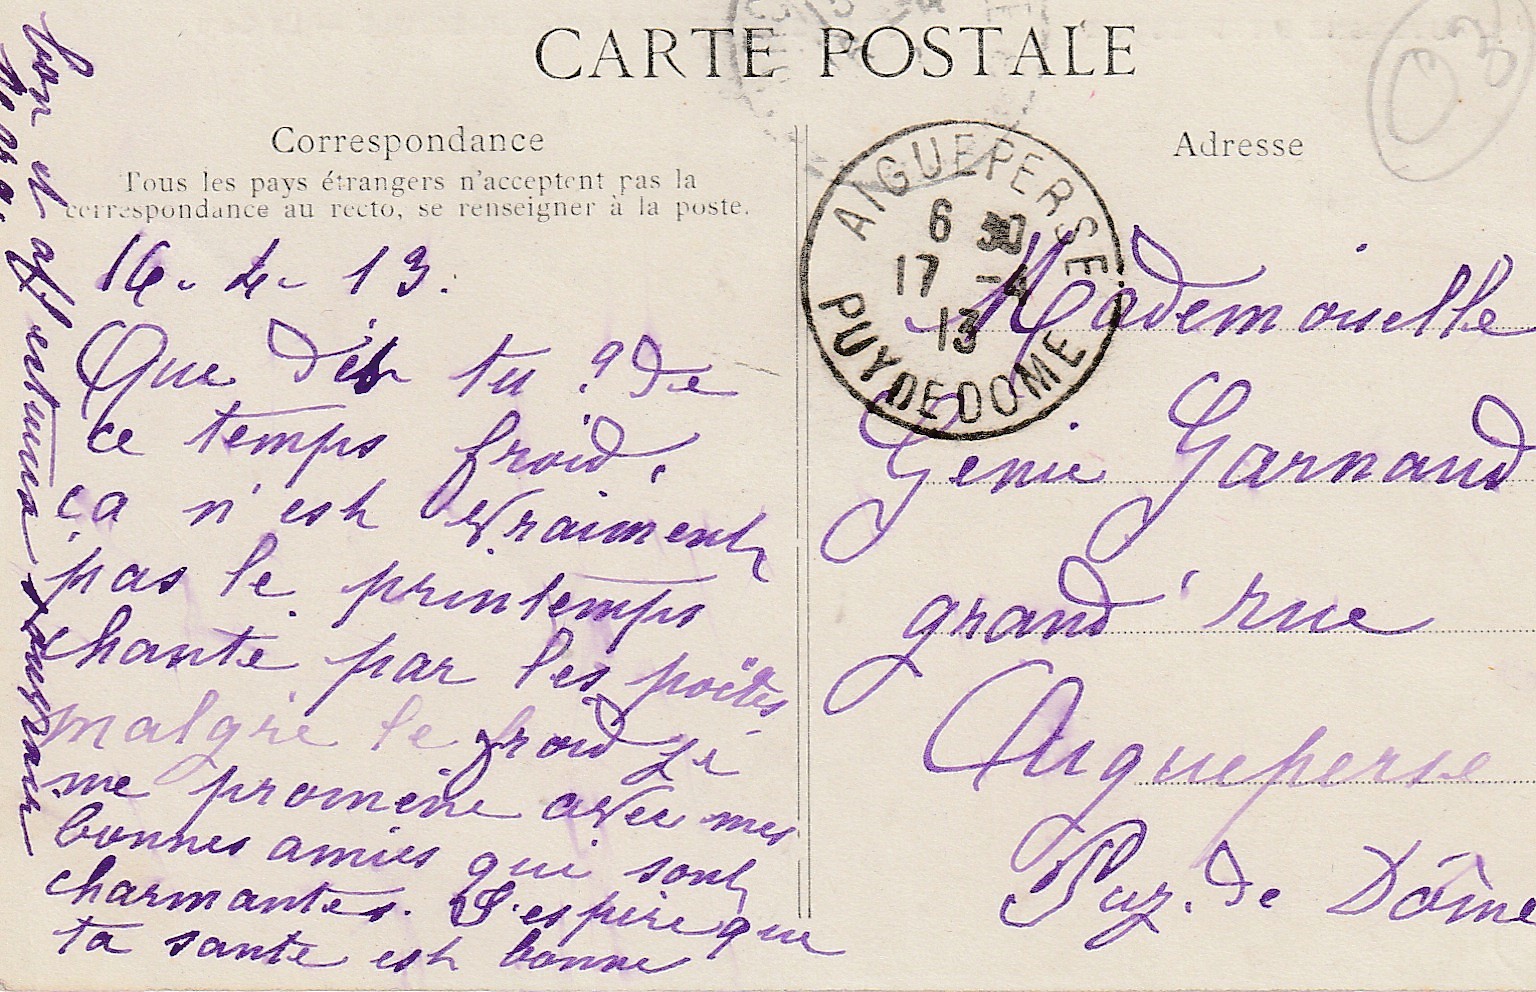 CARTE POSTALE
Correspondance
Tous les pays étrangers n'acceptent pas la
correspondance au recto, se renseigner à la poste.
16-4-13.
Que dis tu ? de
ce temps froid,
ça n'est vraiment
pas le printemps
chanté par les poètes
malgré le froid je
me promène avec mes
bonnes amies qui sont
charmantes. J'espère que
ta santé est bonne
bon et affectueux
Adresse
AIGUEPERSE
6 30
17 -4
13
PUY DE DOME
Mademoiselle
Génie Garnaud
grand'rue
Aigueperse
Puy. de Dôme